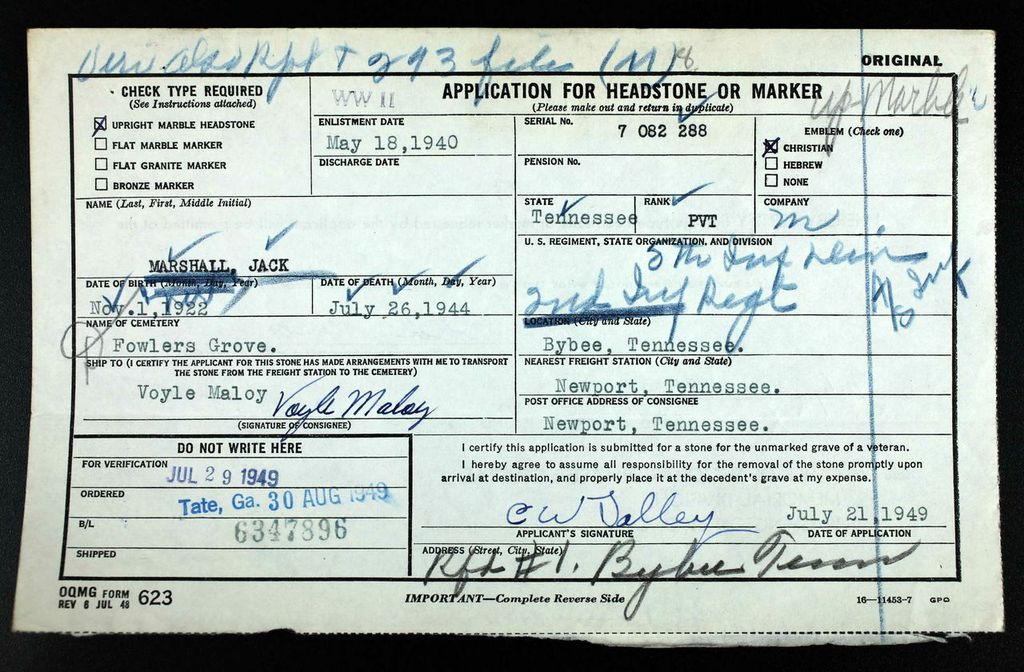 ORIGINAL
CHECK TYPE REQUIRED
(See Instructions attached)
UPRIGHT MARBLE HEADSTONE
FLAT MARBLE MARKER
FLAT GRANITE MARKER
BRONZE MARKER
WW II
APPLICATION FOR HEADSTONE OR MARKER
(Please make out and return in duplicate)
Up Marble
ENLISTMENT DATE
May 18,1940
DISCHARGE DATE
SERIAL No.
7 082 288
PENSION No.
EMBLEM (Check one)
CHRISTIAN
HEBREW
NONE
NAME (Last, First, Middle Initial)
MARSHALL, JACK
STATE
Tennessee
RANK
PVT
COMPANY
M
U. S. REGIMENT, STATE ORGANIZATION, AND DIVISION
5th Inf Divn
2nd Inf Regt
DATE OF BIRTH (Month, Day, Year)
Nov.1,1922
DATE OF DEATH (Month, Day, Year)
July 26,1944
NAME OF CEMETERY
Fowlers Grove.
LOCATION (City and State)
Bybee, Tennessee.
SHIP TO (I CERTIFY THE APPLICANT FOR THIS STONE HAS MADE ARRANGEMENTS WITH ME TO TRANSPORT
THE STONE FROM THE FREIGHT STATION TO THE CEMETERY)
Voyle Maloy Voyle Maloy
(SIGNATURE OF CONSIGNEE)
NEAREST FREIGHT STATION (City and State)
Newport, Tennessee.
POST OFFICE ADDRESS OF CONSIGNEE
Newport, Tennessee.
DO NOT WRITE HERE
FOR VERIFICATION
JUL 29 1949
ORDERED
Tate, Ga. 30 AUG 1949
B/L
6347896
SHIPPED
I certify this application is submitted for a stone for the unmarked grave of a veteran.
I hereby agree to assume all responsibility for the removal of the stone promptly upon
arrival at destination, and properly place it at the decedent's grave at my expense.
C W Dalley July 21,1949
APPLICANT'S SIGNATURE DATE OF APPLICATION
ADDRESS (Street, City, State)
Rfd #1. Bybee Tenn
OQMG FORM 623
REV 6 JUL 48
IMPORTANT—Complete Reverse Side
16—11453-7 GPO